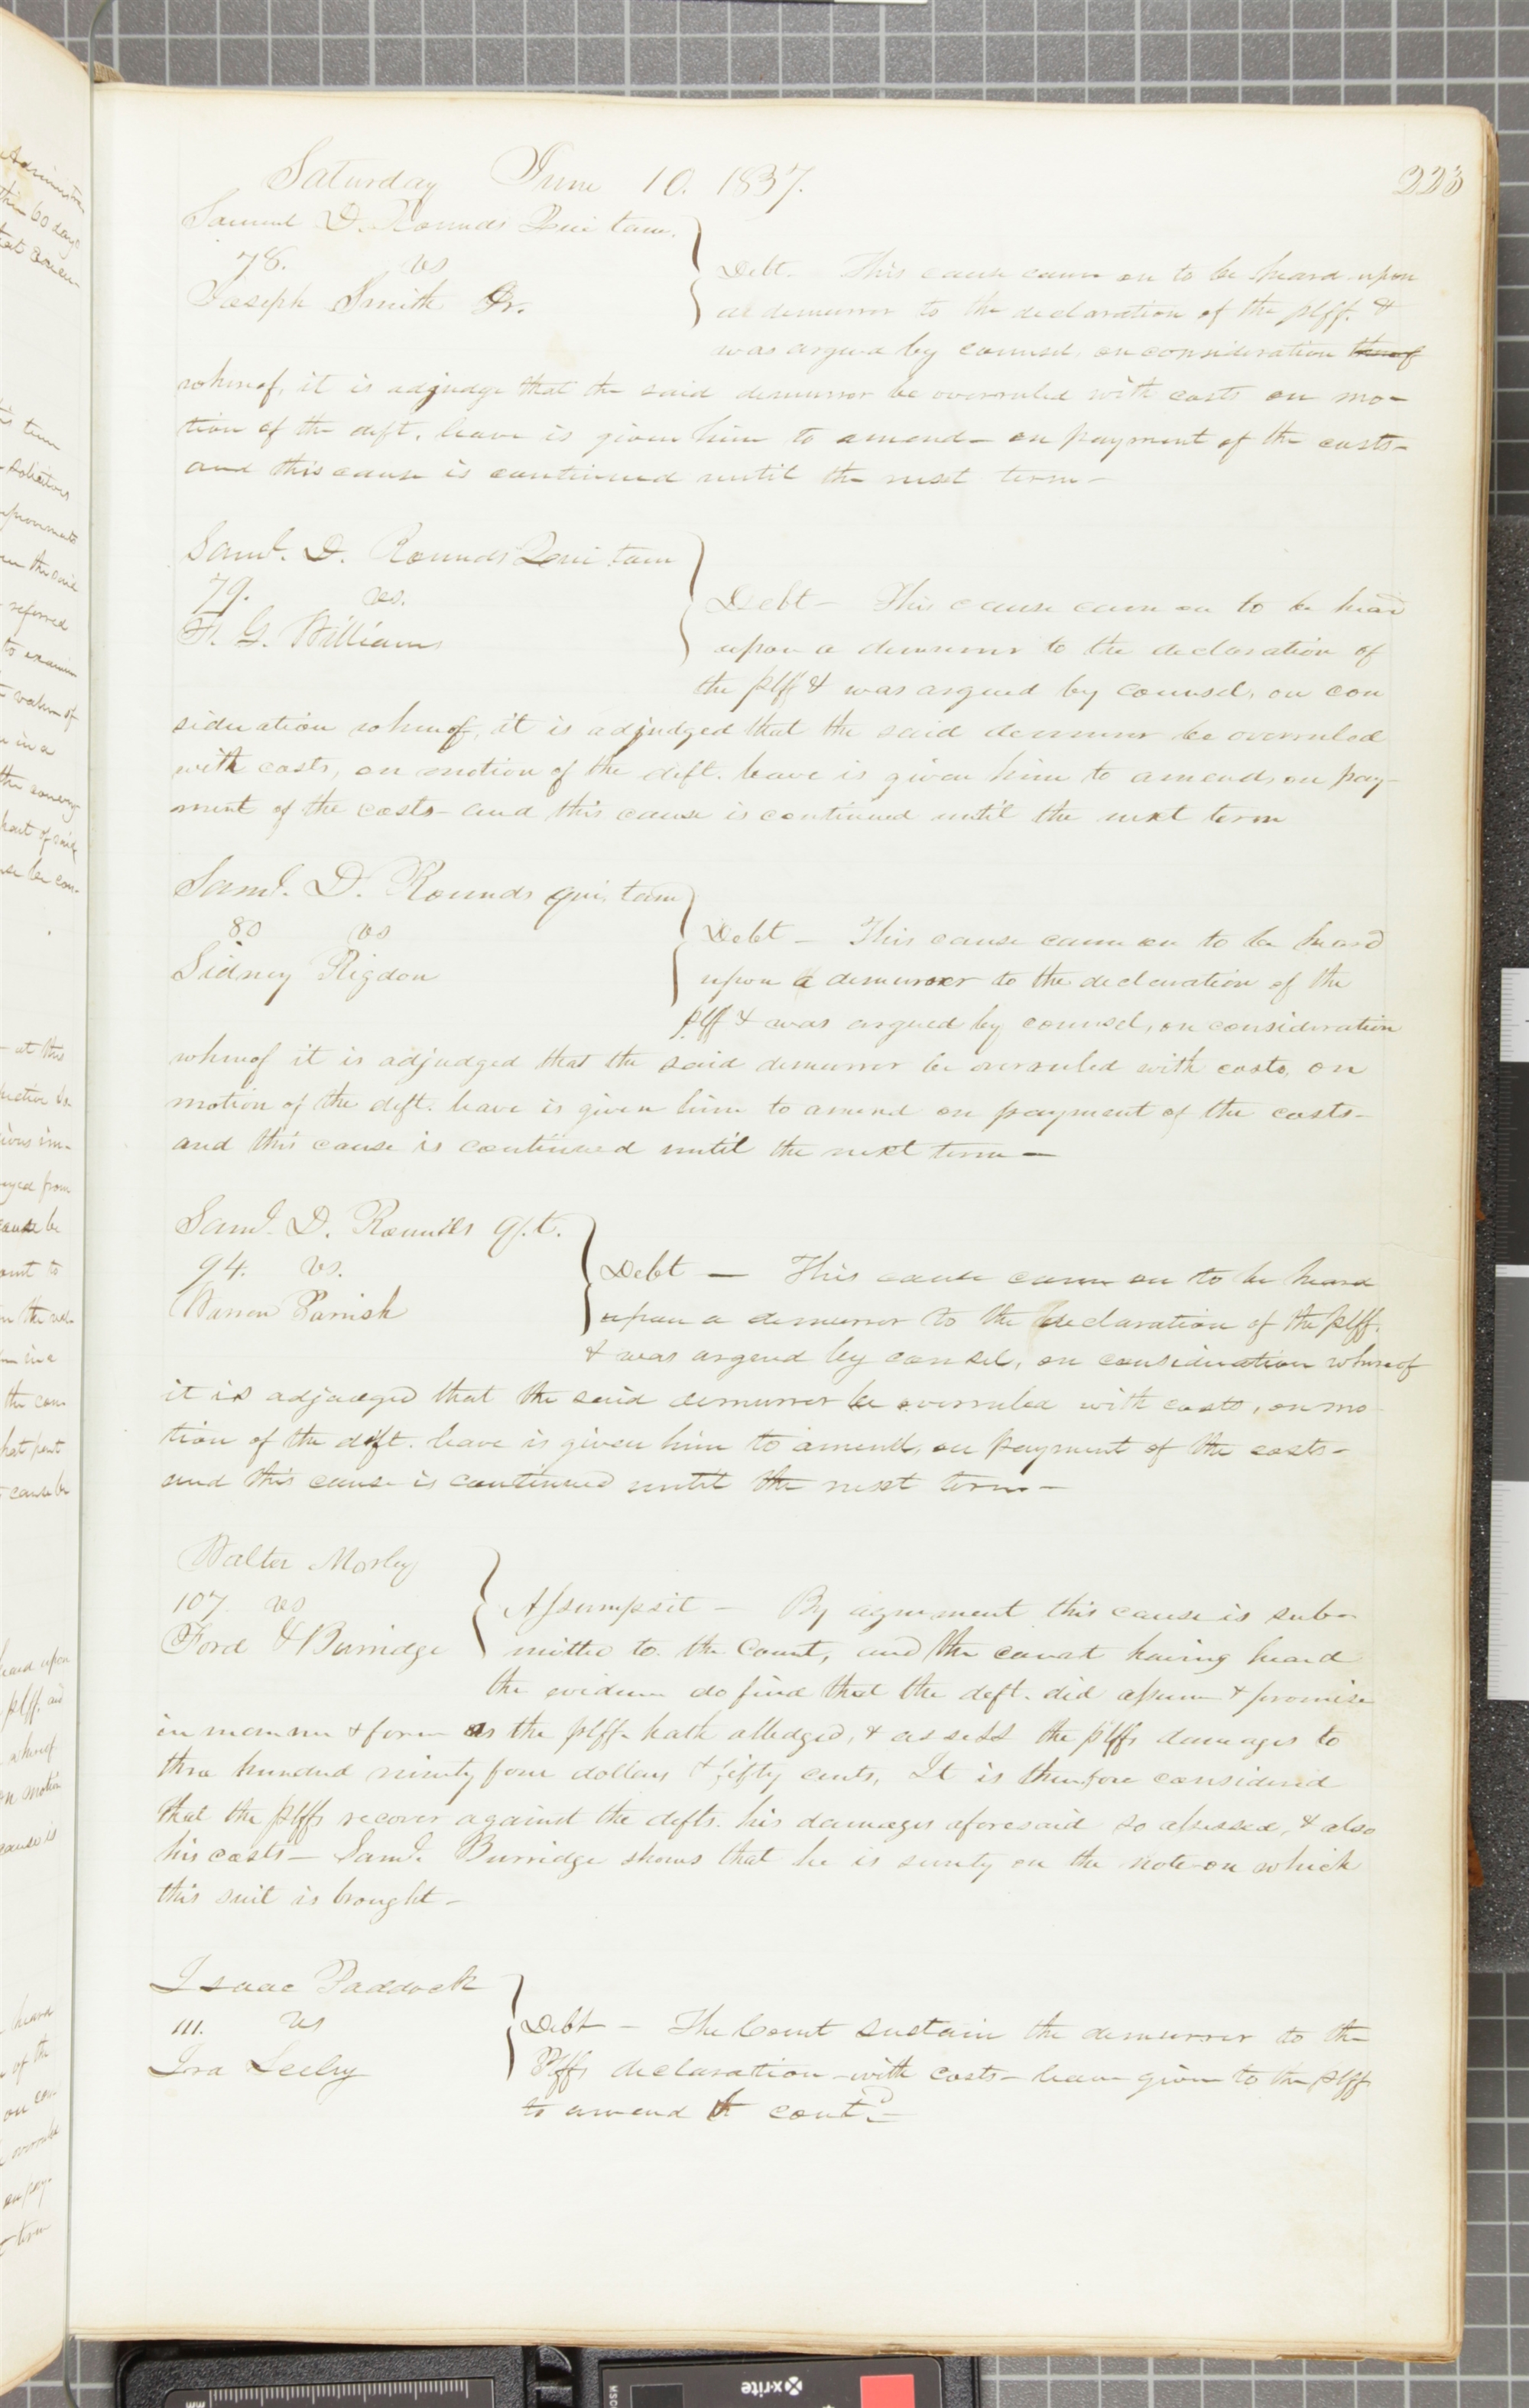 Saturday June 10. 1837.
223
Samuel D. Rounds Qui tam.
78. vs
Joseph Smith Jr.
Debt - This cause came on to be heard upon
a demurror to the declaration of the plff. &
was argued by counsel, on consideration thereof
whereof, it is adjudge that the said demurror be overruled with costs on mo-
tion of the deft. leave is given him to amend - on payment of the costs -
and this cause is continued until the next term -
Saml. D. Rounds Qui tam
79. vs.
F. G. Williams
Debt - This cause came on to be heard
upon a demurror to the declaration of
the plff & was argued by counsel, on con
sideration whereof, it is adjudged that the said demurror be overruled
with costs, on motion of the deft. leave is given him to amend, on pay-
ment of the costs - and this cause is continued until the next term
Saml. D. Rounds qui tam
80 vs
Sidney Rigdon
Debt - This cause came on to be heard
upon a demurrer to the declaration of the
plff & was argued by counsel, on consideration
whereof it is adjudged that the said demurror be overruled with costs, on
motion of the deft. leave is given him to amend on payment of the costs -
and this cause is continued until the next term -
Saml. D. Rounds q.t.
94. vs.
Warren Parrish
Debt - This cause came on to be heard
upon a demurror to the declaration of the plff.
& was argued by counsel, on consideration whereof
it is adjudged that the said demurrer be overruled with costs, on mo
tion of the deft. leave is given him to amend, on payment of the costs -
and this cause is continued until the next term -
Walter Morley
107. vs
Ford & Burridge
Assumpsit - By agreement this cause is sub-
mitted to the Court, and the court having heard
the evidence do find that the deft. did assume & promise
in manner & form as the plff. hath alledged, & assess the plffs damages to
three hundred ninety four dollars & fifty cents, It is therefore considered
that the plffs recover against the defts. his damages aforesaid so assessed, & also
his costs - Saml. Burridge shows that he is surety on the note on which
this suit is brought -
Isaac Paddock
111. vs
Ira Seeley
Debt - The Court sustain the demurrer to the
Plffs declaration - with costs - leave given to the plff
to amend & contd. -
Administra
thin 60 days
this term
Solicitors
in the said
referred
to examin
value of
in a
se be con-
at this
eyed from
cause be
in the
the con-
cause be
heard upon
plff. and
whereof
on motion
cause is
heard
of the
on con
overruled
on pay-
term
mm
x-rite